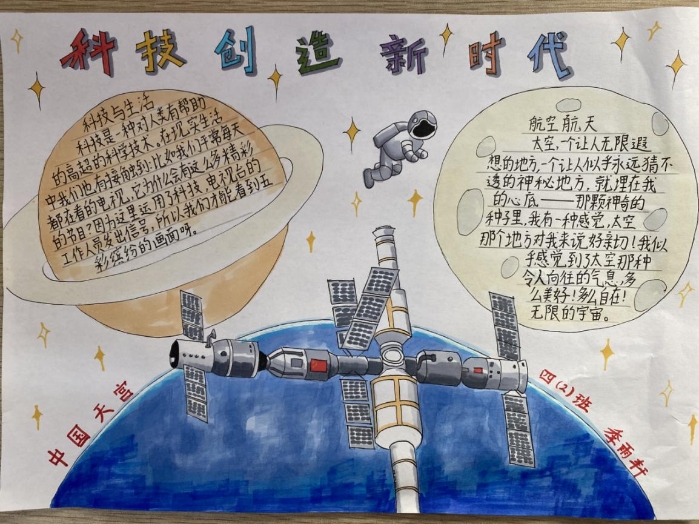 科技创造新时代
科技与生活
科技是一种对人类有帮助
的高超的科学技术。在现实生活
中我们也有接触到,比如我们平常每天
都在看的电视,它为什么会有这么多精彩
的节目?因为这里运用了科技,电视台的
工作人员发出信号,所以我们才能看到五
彩缤纷的画面呀。
航空航天
太空,一个让人无限遐
想的地方,一个让人似乎永远猜不
透的神秘地方,就埋在我
的心底——那颗神奇的
种子里。我有一种感觉,太空
那个地方对我来说好亲切!我似
乎感觉到了太空那种
令人向往的气息,多
么美好!多么自在!
无限的宇宙。
中国天宫
四(2)班 季雨轩